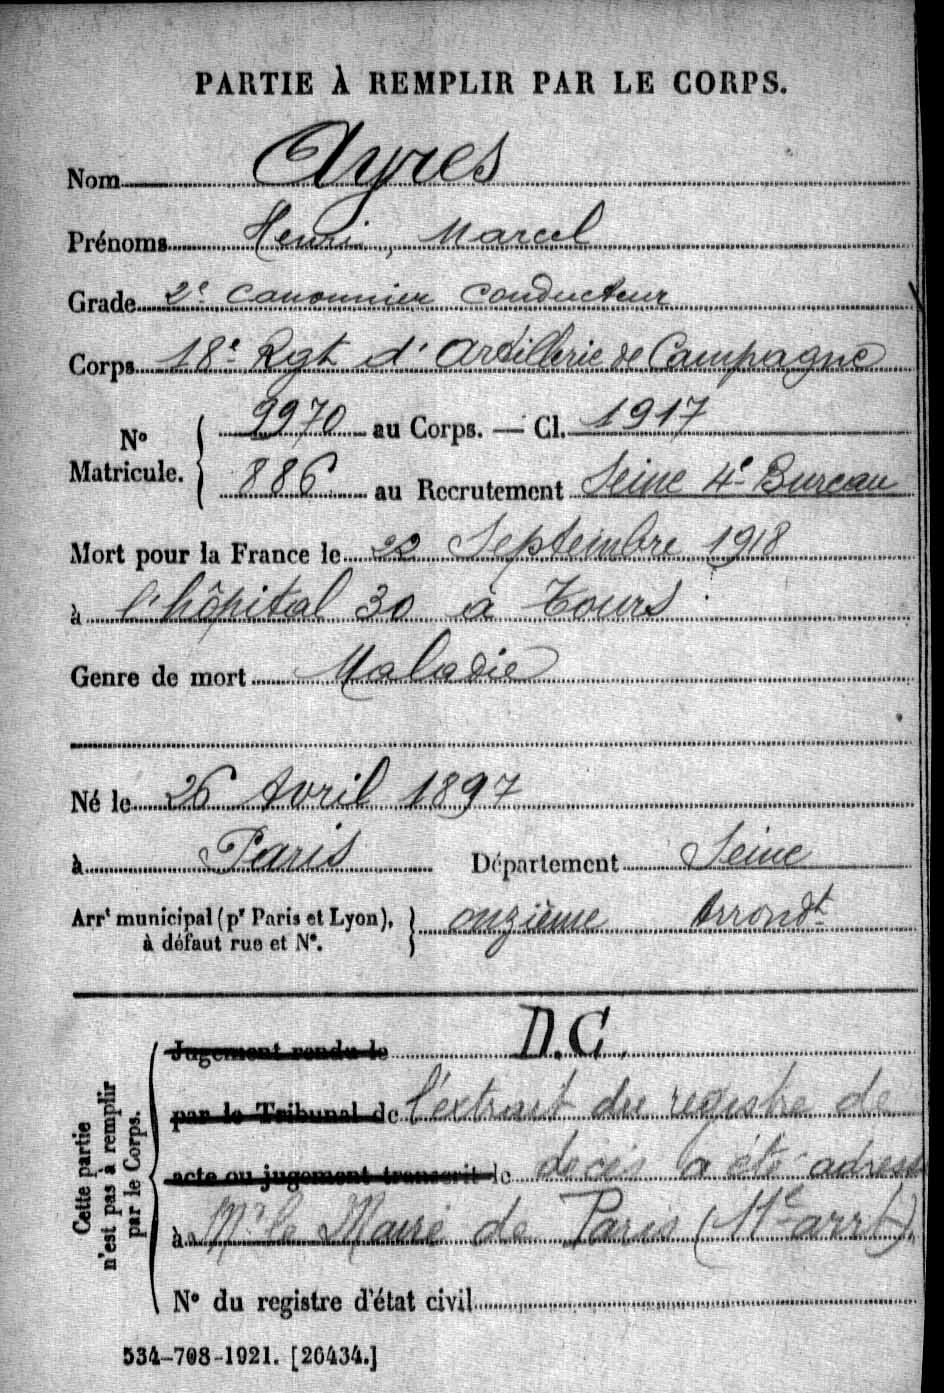 PARTIE À REMPLIR PAR LE CORPS.
Nom Ayres
Prénoms Henri, Marcel
Grade 2e canonnier conducteur
Corps 18e Rgt d'Artillerie de Campagne
No Matricule. { 9970 au Corps. — Cl. 1917
886 au Recrutement Seine 4e Bureau
Mort pour la France le 22 Septembre 1918
à l'hôpital 30 à Tours
Genre de mort Maladie
Né le 26 Avril 1897
à Paris Département Seine
Arrt municipal (pr Paris et Lyon), à défaut rue et No. } onzième Arrondt
Cette partie n'est pas à remplir par le Corps.
Jugement rendu le D.C.
par le Tribunal de l'extrait du registre de
acte ou jugement transcrit le décès a été adressé
à Mr le Maire de Paris (11e arrt).
No du registre d'état civil
534-708-1921. [26434.]